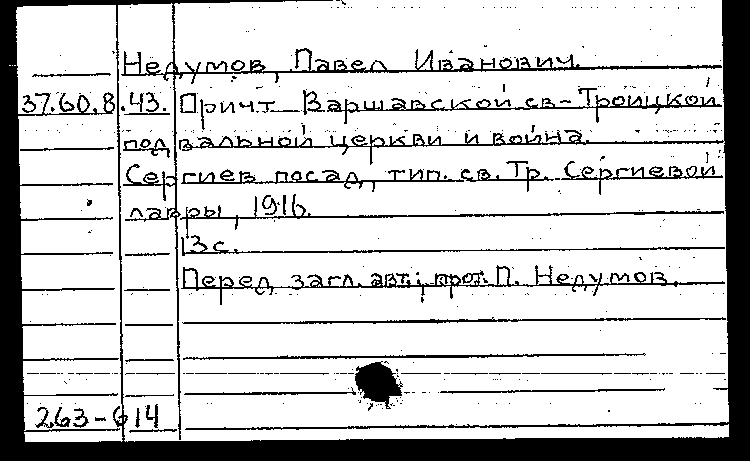 Недумов, Павел Иванович.
37.60.8.43. Причт Варшавской св-Троицкой
подвальной церкви и война.
Сергиев посад, тип. св. Тр. Сергиевой
лавры, 1916.
13 с.
Перед загл. авт.: прот. П. Недумов.
263-614